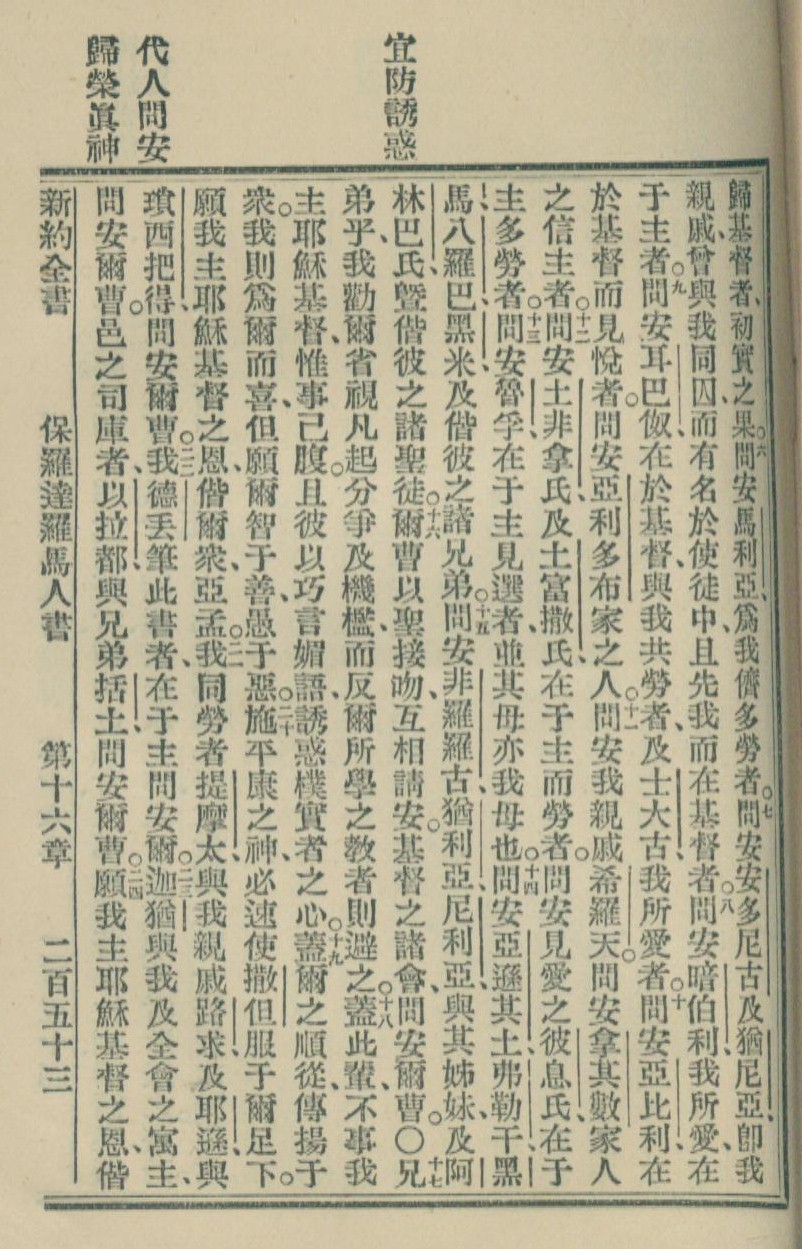 宜防誘惑
代人問安
歸榮眞神
歸基督者、初實之果。六問安馬利亞、爲我儕多勞者。七問安安多尼古及猶尼亞、卽我
親戚、曾與我同囚、而有名於使徒中、且先我而在基督者。八問安暗伯利、我所愛在
于主者。九問安耳巴伮在於基督、與我共勞者、及士大古、我所愛者。十問安亞比利在
於基督而見悅者。問安亞利多布家之人。十一問安我親戚希羅天。問安拿其數家人
之信主者。十二問安土非拿氏及土富撒氏、在于主而勞者。問安見愛之彼息氏、在于
主多勞者。十三問安魯孚在于主見選者、並其母亦我母也。十四問安亞遜其土、弗勒干、黑
馬、八羅巴、黑米、及偕彼之諸兄弟。十五問安非羅羅古、猶利亞、尼利亞、與其姊妹、及阿
林巴氏、曁偕彼之諸聖徒。十六爾曹以聖接吻、互相請安。基督之諸會、問安爾曹。〇十七兄
弟乎、我勸爾省視凡起分爭及機檻、而反爾所學之教者、則避之。十八蓋此輩、不事我
主耶穌基督、惟事己腹。且彼以巧言媚語、誘惑樸實者之心。十九蓋爾之順從、傳揚于
衆。我則爲爾而喜、但願爾智于善、愚于惡。二十施平康之神、必速使撒但服于爾足下。
願我主耶穌基督之恩、偕爾衆、亞孟。二一我同勞者提摩太、與我親戚路求、及耶遜、與
瑣西把得、問安爾曹。二二我德丟筆此書者、在于主問安爾。二三迦猶與我及全會之寓主、
問安爾曹。邑之司庫者、以拉都、與兄弟括土、問安爾曹。二四願我主耶穌基督之恩、偕
新約全書 保羅達羅馬人書 第十六章 二百五十三